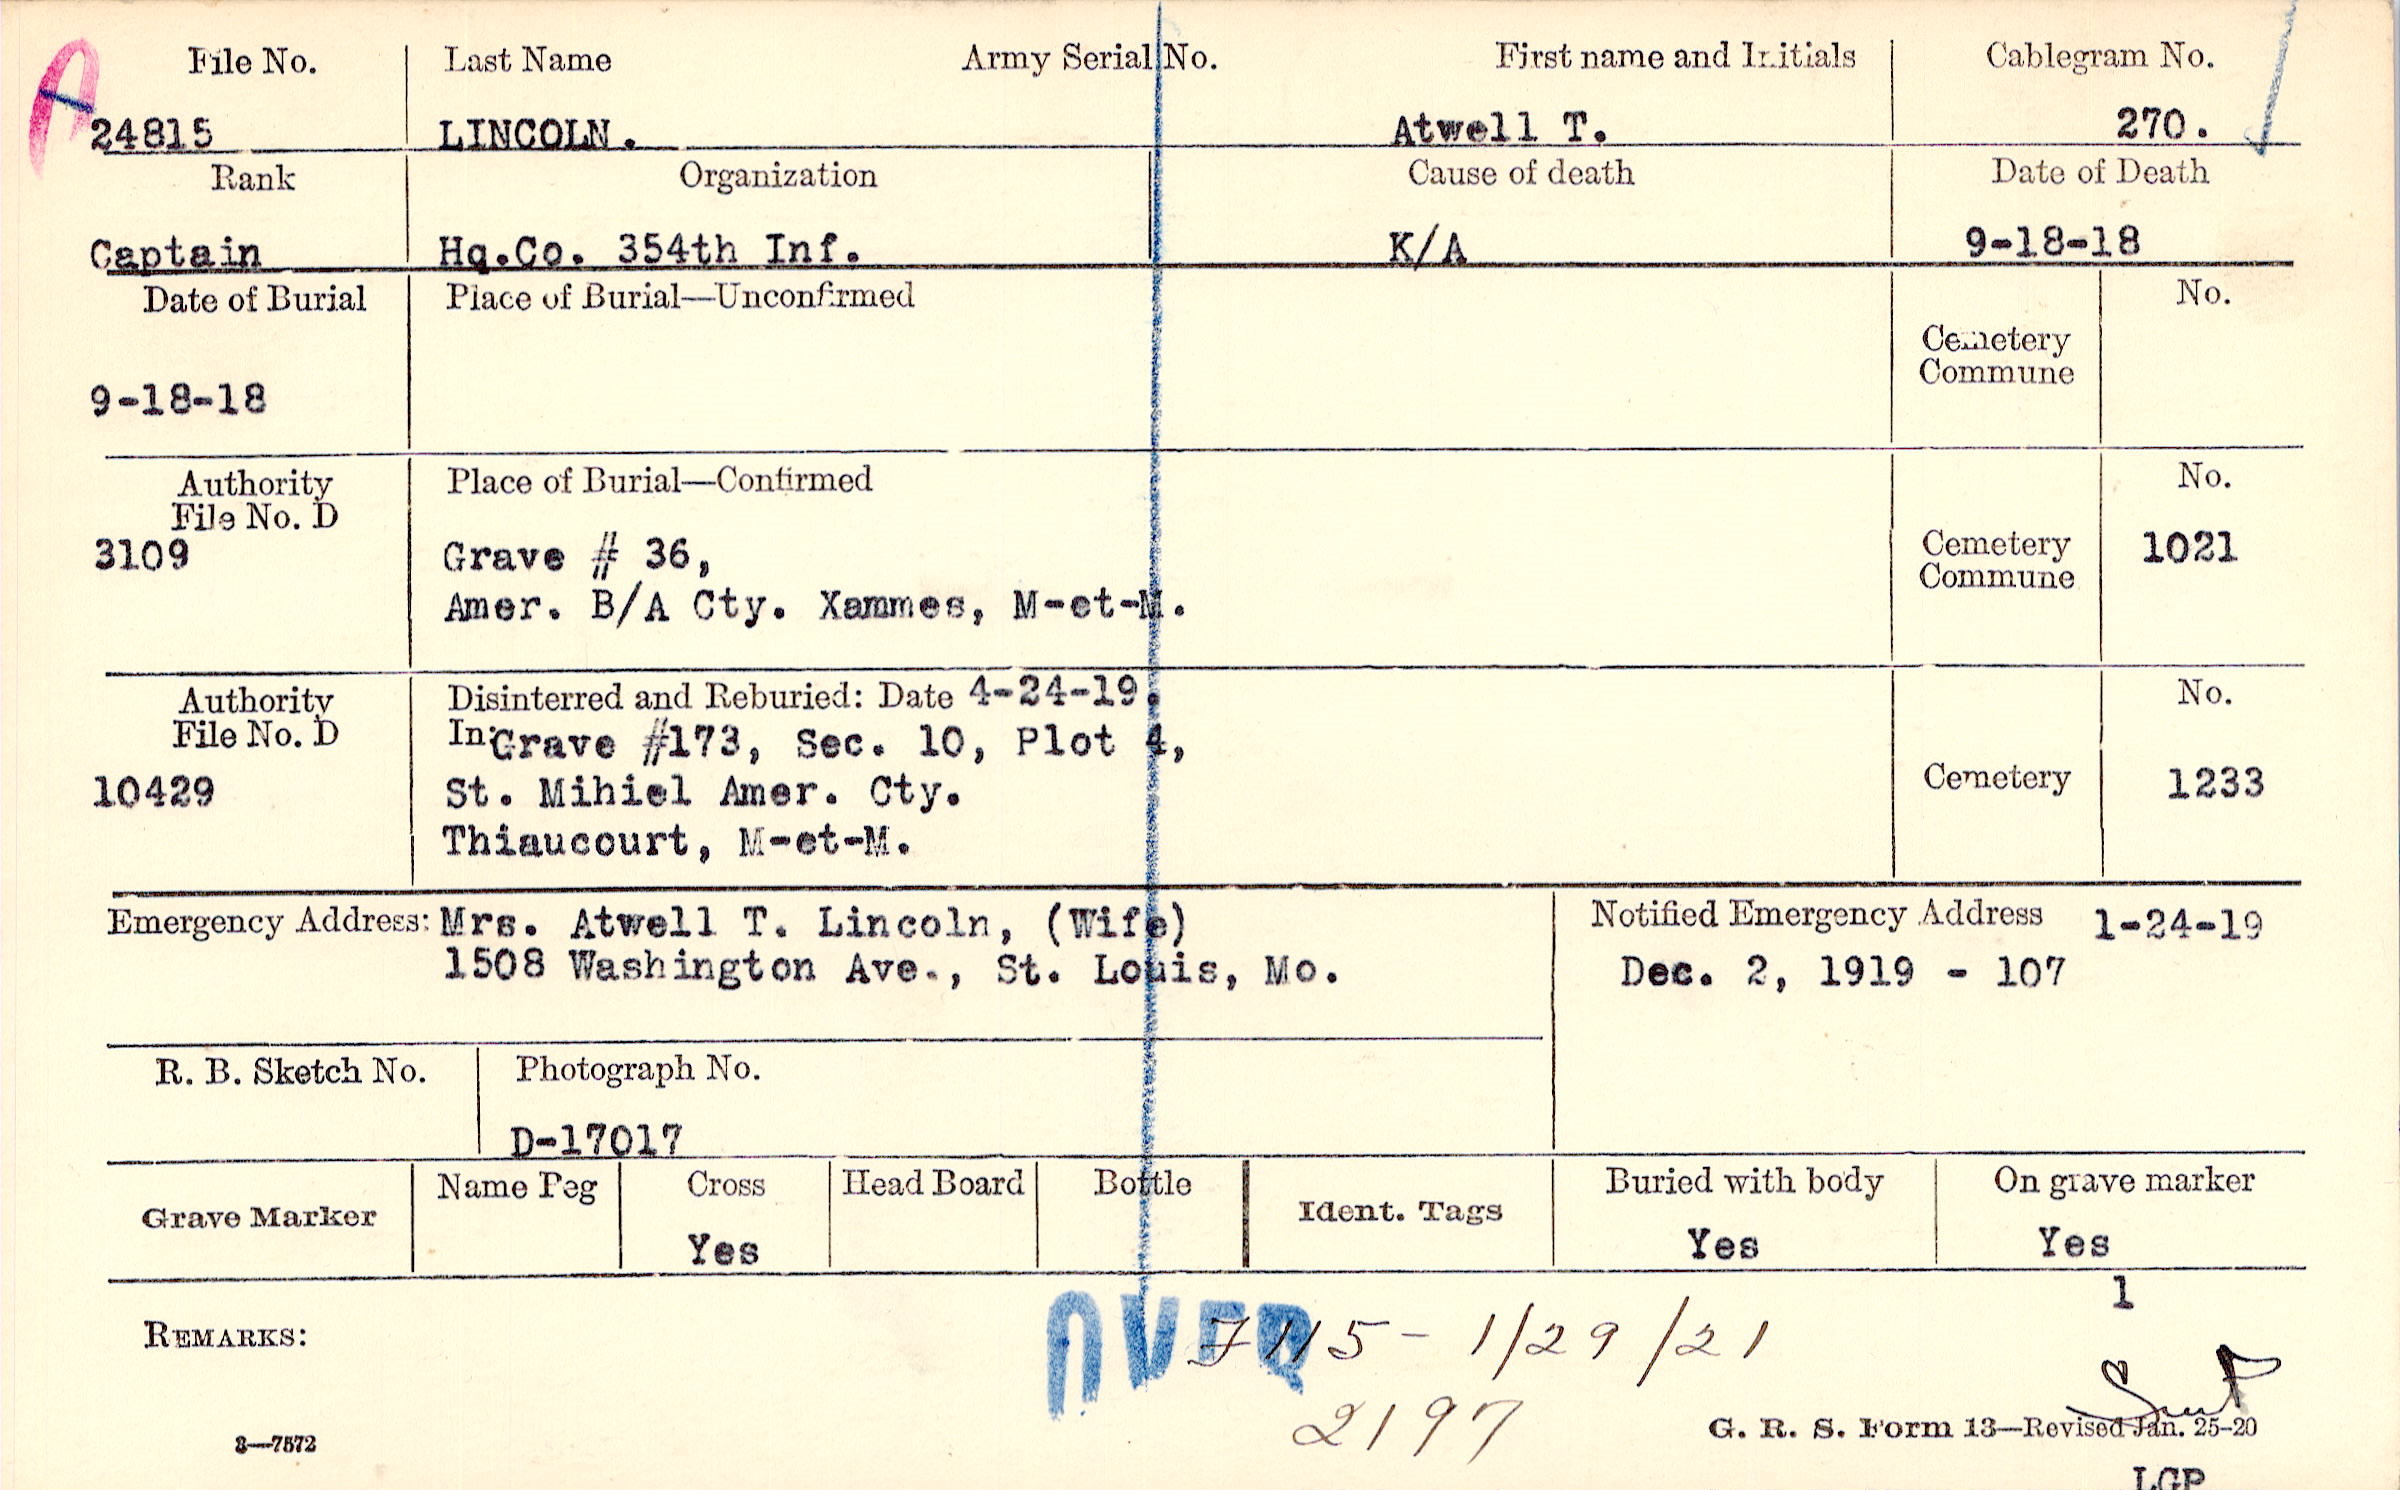 A
File No. Last Name Army Serial No. First name and Initials Cablegram No.
24815 LINCOLN. Atwell T. 270.
Rank Organization Cause of death Date of Death
Captain Hq.Co. 354th Inf. K/A 9-18-18
Date of Burial Place of Burial—Unconfirmed No.
Cemetery
Commune
9-18-18
Authority Place of Burial—Confirmed No.
File No. D
3109 Grave # 36, Cemetery 1021
Commune
Amer. B/A Cty. Xammes, M-et-M.
Authority Disinterred and Reburied: Date 4-24-19. No.
File No. D In: Grave #173, Sec. 10, Plot 4,
10429 St. Mihiel Amer. Cty. Cemetery 1233
Thiaucourt, M-et-M.
Emergency Address: Mrs. Atwell T. Lincoln, (Wife) Notified Emergency Address 1-24-19
1508 Washington Ave., St. Louis, Mo. Dec. 2, 1919 - 107
R. B. Sketch No. Photograph No.
D-17017
Name Peg Cross Head Board Bottle Buried with body On grave marker
Grave Marker Ident. Tags
Yes Yes Yes
1
REMARKS: 7115 - 1/29/21
2197
3—7572 G. R. S. Form 13—Revised Jan. 25-20
LGP